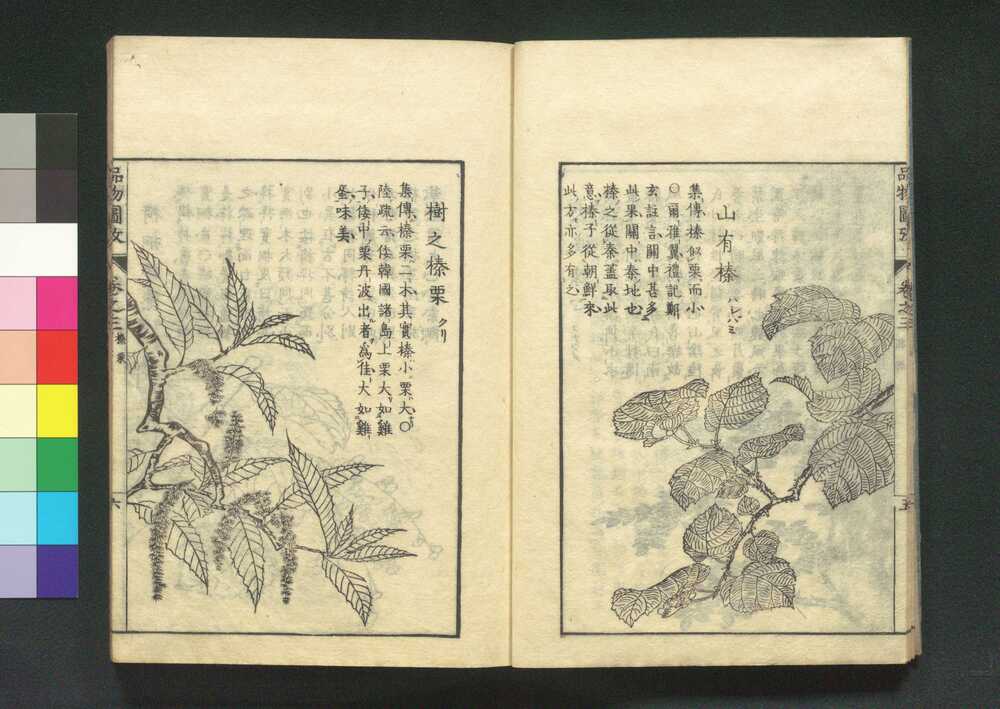 山有榛 ハシバミ
集傳榛似栗而小
〇爾雅翼禮記鄭
玄註言關中甚多
此果關中秦地也
榛之從秦蓋取此
意榛子從朝鮮來
此方亦多有之
品物圖攷
卷之三
五
樹之榛栗 クリ
集傳榛栗二木其實榛小栗大〇
陸疏云倭韓國諸島上栗大如雞
子倭中栗丹波出者爲佳大如雞
蛋味美
品物圖攷
卷之三
榛栗
六